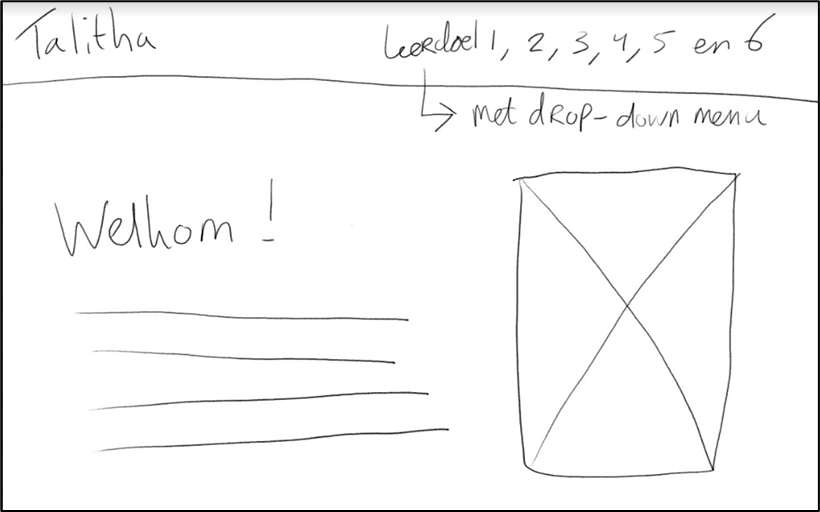 Talitha
Leerdoel 1, 2, 3, 4, 5 en 6
met drop-down menu
Welkom!